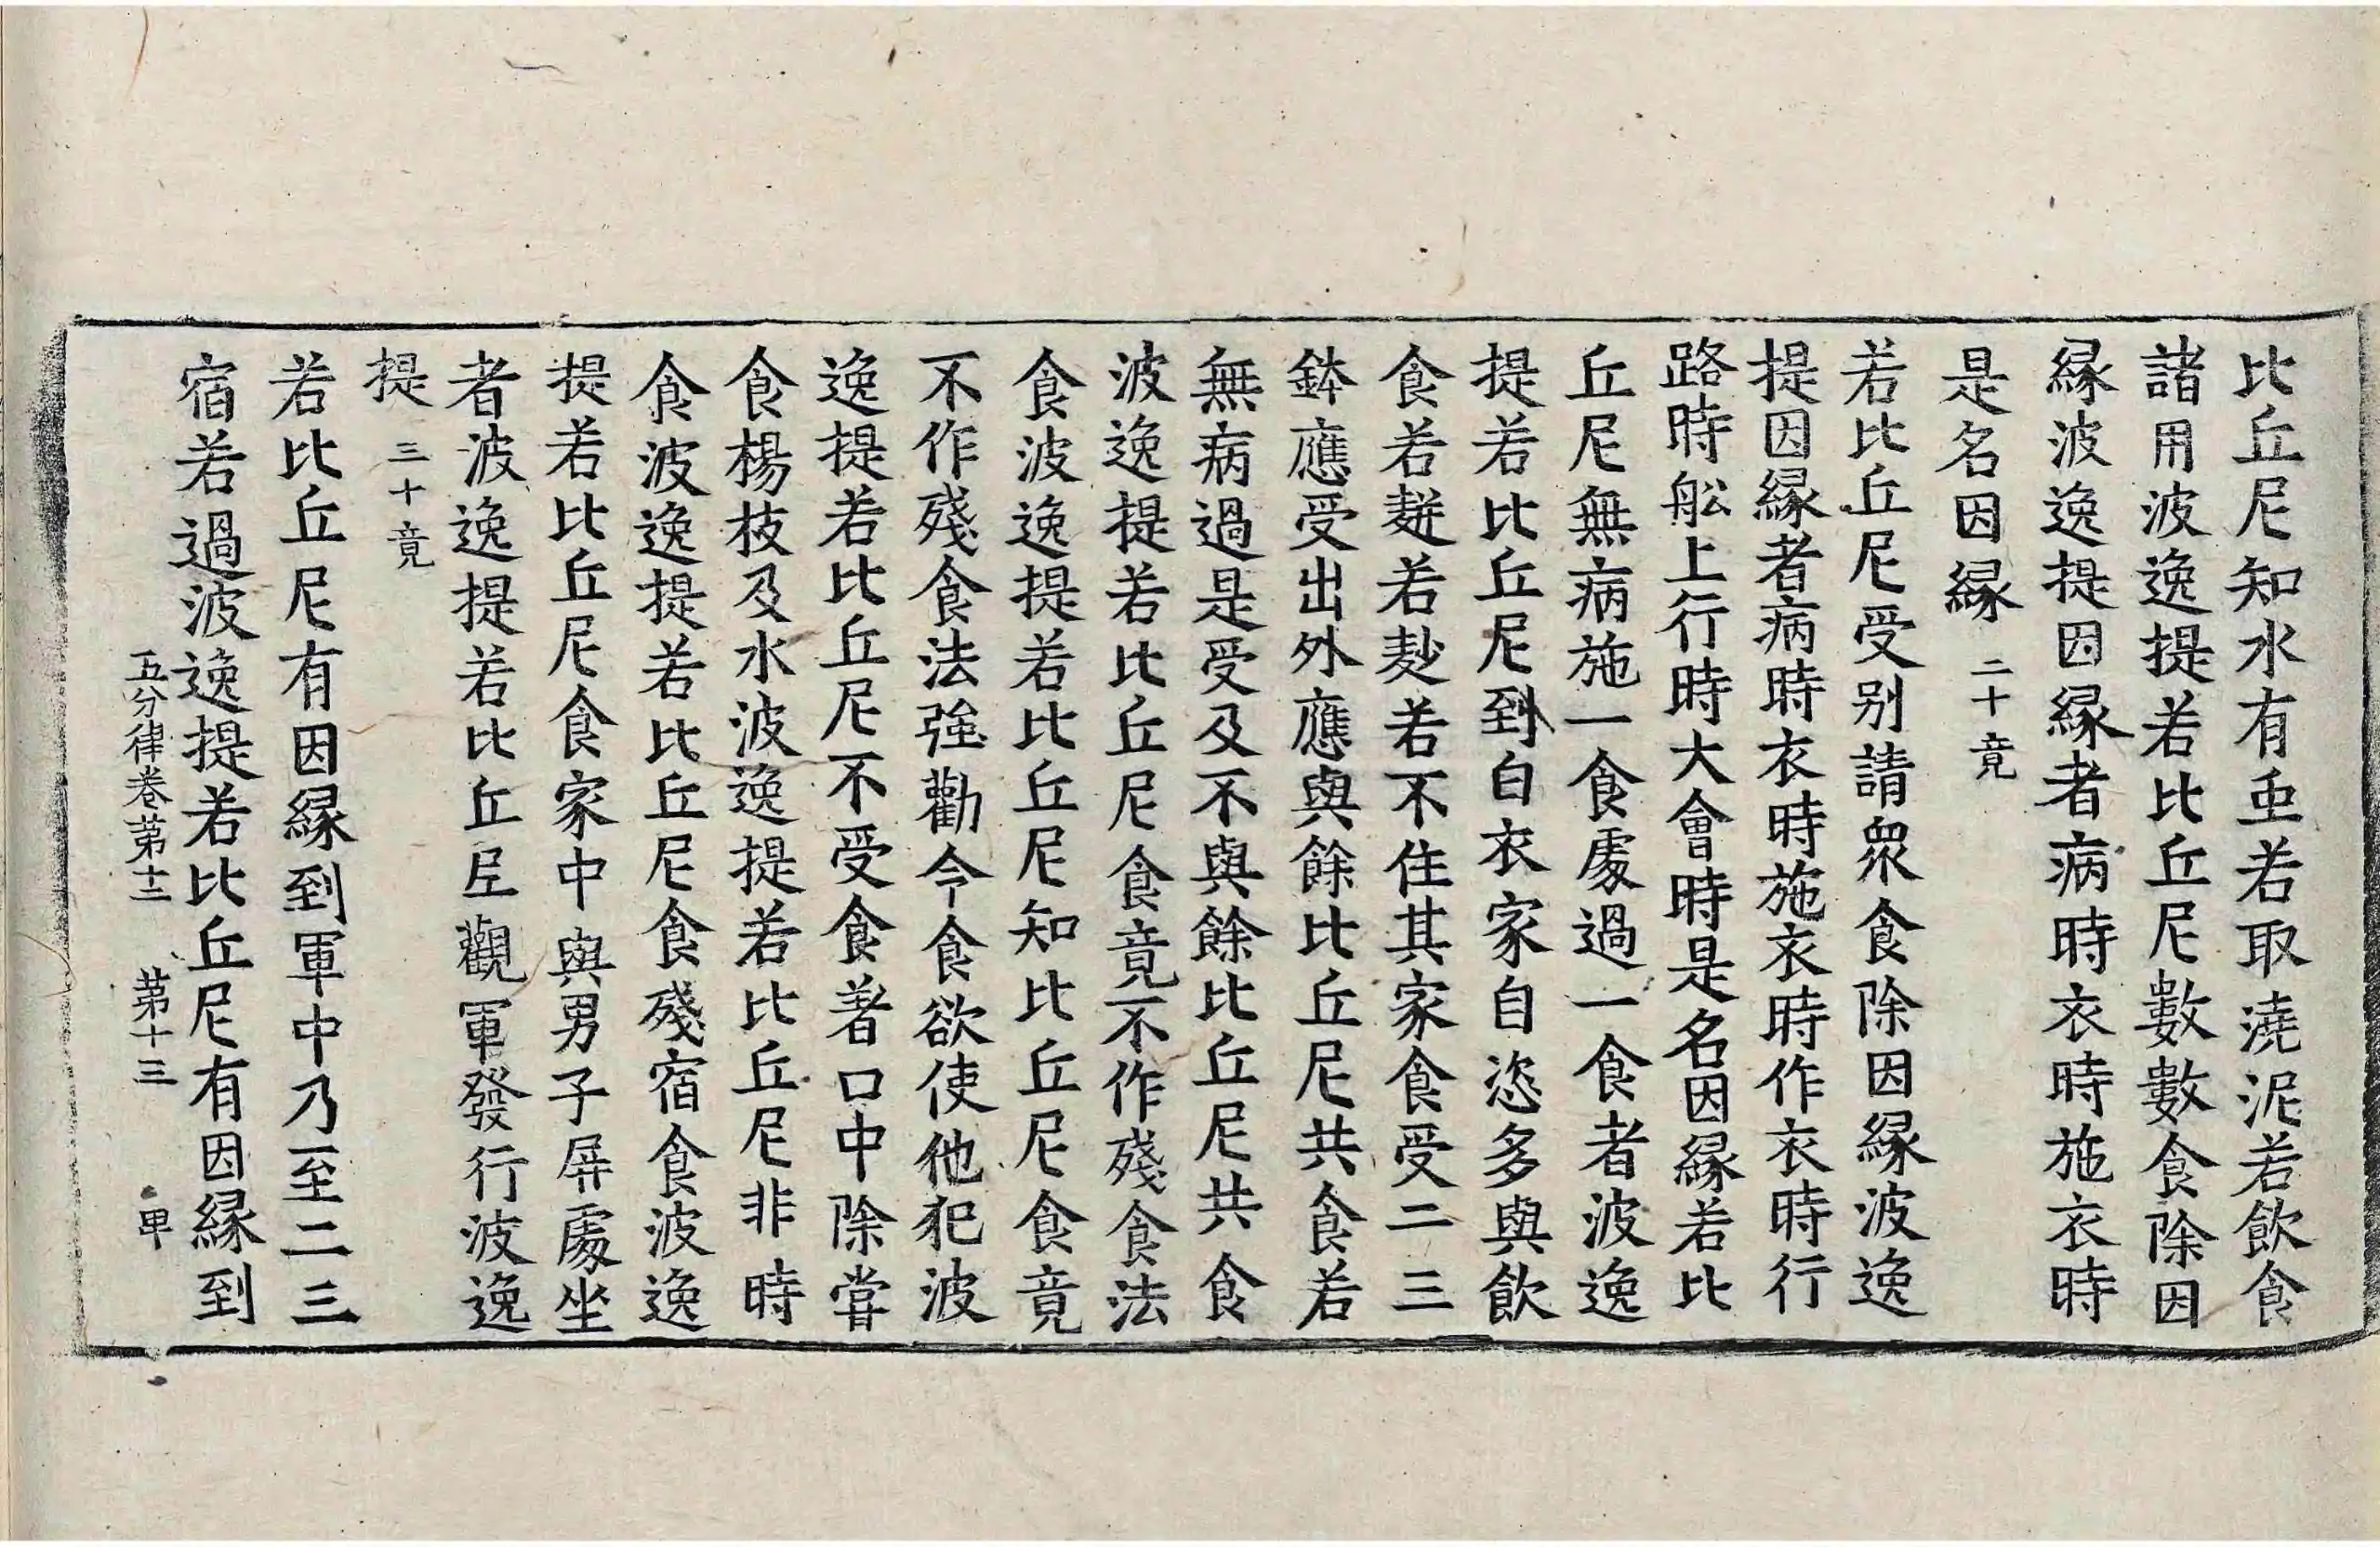 比丘尼知水有䖝若取澆泥若飲食
諸用波逸提若比丘尼數數食除因
縁波逸提因縁者病時衣時施衣時
是名因縁 二十竟
若比丘尼受别請衆食除因縁波逸
提因縁者病時衣時施衣時作衣時行
路時舩上行時大會時是名因縁若比
丘尼無病施一食處過一食者波逸
提若比丘尼到白衣家自恣多與飲
食若䴵若麨若不住其家食受二三
鉢應受出外應與餘比丘尼共食若
無病過是受及不與餘比丘尼共食
波逸提若比丘尼食竟不作殘食法
食波逸提若比丘尼知比丘尼食竟
不作殘食法強勸令食欲使他犯波
逸提若比丘尼不受食著口中除甞
食楊枝及水波逸提若比丘尼非時
食波逸提若比丘尼食殘宿食波逸
提若比丘尼食家中與男子屏處坐
者波逸提若比丘尼觀軍發行波逸
提 三十竟
若比丘尼有因縁到軍中乃至二三
宿若過波逸提若比丘尼有因縁到
五分律卷第十二 第十三